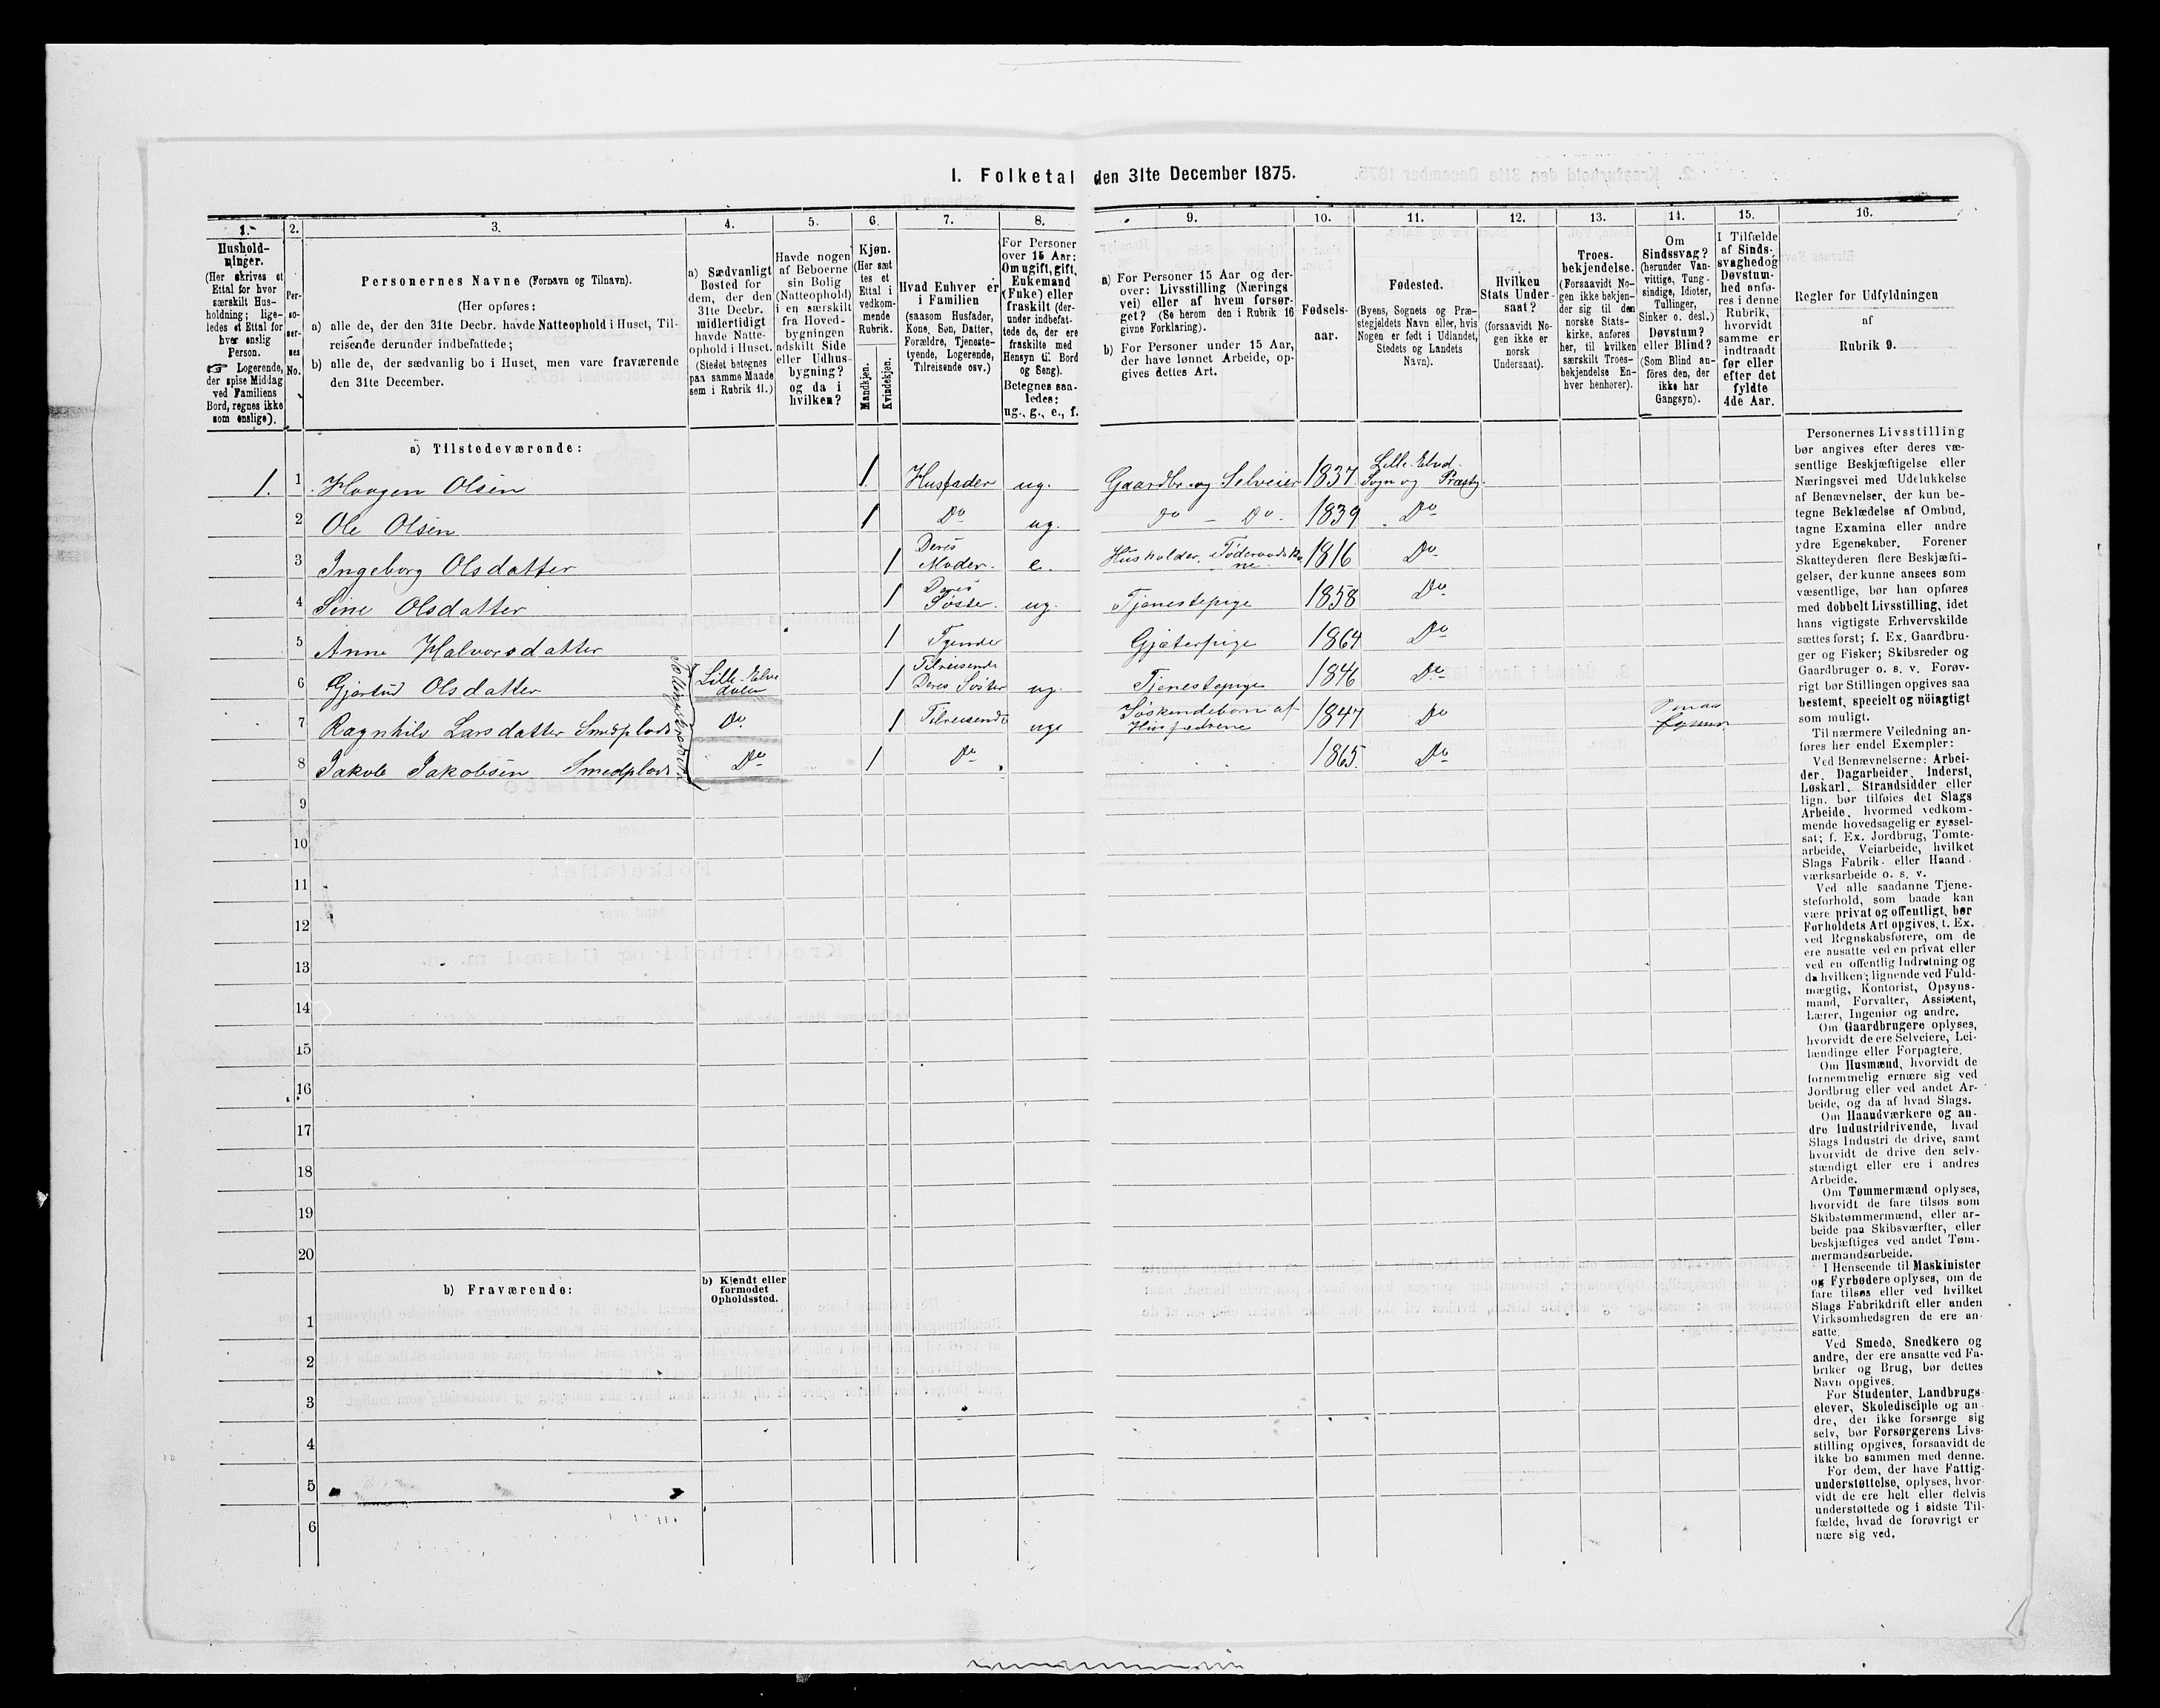 I. Folketal den 31te December 1875.
1. 2. 3. 4. 5. 6. 7. 8. 9. 10. 11. 12. 13. 14. 15. 16.
Hushold-
ninger.
(Her skrives et
Ettal for hver
særskilt Hus-
holdning; lige-
ledes et Ettal for
hver enslig
Person.
☞ Logerende,
der spise Middag
ved Familiens
Bord, regnes ikke
som enslige).
Per-
so-
ner-
nes
No.
Personernes Navne (Fornavn og Tilnavn).
(Her opføres:
a) alle de, der den 31te Decbr. havde Natteophold i Huset, Til-
reisende derunder indbefattede;
b) alle de, der sædvanlig bo i Huset, men vare fraværende
den 31te December.
a) Sædvanligt
Bosted for
dem, der den
31te Decbr.
midlertidigt
havde Natte-
ophold i Huset.
(Stedet betegnes
paa samme Maade
som i Rubrik 11.)
Havde nogen
af Beboerne
sin Bolig
(Natteophold)
i en særskilt
fra Hoved-
bygningen
adskilt Side
eller Udhus-
bygning?
og da i
hvilken?
Kjøn.
(Her sæt
tes et
Ettal i
vedkom-
mende
Rubrik.
Mandkjøn.
Kvindekjøn.
Hvad Enhver er
i Familien
(saasom Husfader,
Kone, Søn, Datter,
Forældre, Tjeneste-
tyende, Logerende,
Tilreisende osv.)
For Personer
over 15 Aar:
Om ugift, gift,
Enkemand
(Enke) eller
fraskilt (der-
under indbefat-
tede de, der ere
fraskilte med
Hensyn til Bord
og Seng).
Betegnes saa-
ledes:
ug., g., e., f.
a) For Personer 15 Aar og der-
over: Livsstilling (Nærings
vei) eller af hvem forsør-
get? (Se herom den i Rubrik 16
givne Forklaring).
b) For Personer under 15 Aar,
der have lønnet Arbeide, op-
gives dettes Art.
Fødsels-
aar.
Fødested.
(Byens, Sognets og Præ-
stegjeldets Navn eller, hvis
Nogen er født i Udlandet,
Stedets og Landets
Navn).
Hvilken
Stats Under-
saat?
(forsaavidt No-
gen ikke er
norsk
Undersaat).
Troes-
bekjendelse.
(Forsaavidt No-
gen ikke bekjen-
der sig til den
norske Stats-
kirke, anføres
her, til hvilken
særskilt Troes-
bekjendelse En-
hver henhører).
Om
Sindssvag?
(herunder Van-
vittige, Tung-
sindige, Idioter,
Tullinger,
Sinker o. desl.)
Døvstum?
eller Blind?
(Som Blind an-
føres den, der
ikke har
Gangsyn).
I Tilfælde
af Sinds-
svaghed og
Døvstum-
hed anfø-
res i denne
Rubrik,
hvorvidt
samme er
indtraadt
før eller
efter det
fyldte
4de Aar.
Regler for Udfyldningen
af
Rubrik 9.
a) Tilstedeværende:
1. 1 Haagen Olsen 1 Husfader ug. Gaardbr. og Selveier 1837 Lille-Elvd. Sogn og Præstg.
2 Ole Olsen 1 Do ug. Do - Do. 1839 Do
3 Ingeborg Olsdatter 1 Deres Moder. e. Husholder. Føderaadsko ne 1816 Do
4 Sine Olsdatter 1 Deres Søster. ug. Tjenestepige 1858 Do
5 Anne Halvorsdatter 1 Tyende Gjæterpige 1864 Do
6 Gjertrud Olsdatter Lille-Elve dalen 1 Tilreisende Deres Søster ug. Tjenestepige 1846 Do
7 Ragnhild Larsdatter Smedplads Do. 1 Tilreisende ug. Søskendebarn af Husfædrene 1847 Do
8 Jakob Jakobsen Smedplads Do 1 Do 1865. Do
9
10
11
12
13
14
15
16
17
18
19
20
b) Fraværende:
b) Kjendt eller
formodet
Opholdssted.
1
2
3
4
5
6
Personernes Livsstilling
bør angives efter deres væ-
sentlige Beskjæftigelse eller
Næringsvei med Udelukkelse
af Benævnelser, der kun be-
tegne Beklædelse af Ombud,
tagne Examina eller andre
ydre Egenskaber. Forener
Skatteyderen flere Beskjæfti-
gelser, der kunne ansees som
væsentlige, bør han opføres
med dobbelt Livsstilling, idet
hans vigtigste Erhvervskilde
sættes først; f. Ex. Gaardbru-
ger og Fisker; Skibsreder og
Gaardbruger o. s. v. Forøv-
rigt bør Stillingen opgives saa
bestemt, specielt og nöiagtigt
som muligt.
Til nærmere Veiledning an-
føres her endel Exempler:
Ved Benævnelserne: Arbei-
der, Dagarbeider, Inderst,
Løskarl, Strandsidder eller
lign. bør tilføies det Slags
Arbeide, hvormed vedkom-
mende hovedsagelig er syssel-
sat; f. Ex. Jordbrug, Tomte-
arbeide, Veiarbeide, hvilket
Slags Fabrik- eller Haand-
værksarbeide o. s. v.
Ved alle saadanne Tjene-
steforhold, som baade kan
være privat og offentligt, bør
Forholdets Art opgives, t. Ex.
ved Regnskabsførere, om de
ere ansatte ved en privat eller
ved en offentlig Indretning og
da hvilken; lignende ved Fuld-
mægtig, Kontorist, Opsyns-
mand, Forvalter, Assistent,
Lærer, Ingeniør og andre.
Om Gaardbrugere oplyses,
hvorvidt de ere Selveiere, Lei-
lændinge eller Forpagtere.
Om Husmænd, hvorvidt de
fornemmelig ernære sig ved
Jordbrug eller ved andet Ar-
beide, og da af hvad Slags.
Om Haandværkere og an-
dre Industridrivende, hvad
Slags Industri de drive, samt
hvorvidt de drive den selv-
stændigt eller ere i andres
Arbeide.
Om Tømmermænd oplyses,
hvorvidt de fare tilsøs som
Skibstømmermænd, eller ar-
beide paa Skibsværfter, eller
beskjæftiges ved andet Tøm-
mermandsarbeide.
I Henseende til Maskinister
og Fyrbødere oplyses, om de
fare tilsøs eller ved hvilket
Slags Fabrikdrift eller anden
Virksomhedsgren de ere an-
satte.
Ved Smede, Snedkere og
andre, der ere ansatte ved Fa-
briker og Brug, bør dettes
Navn opgives.
For Studenter, Landbrugs-
elever, Skoledisciple og an-
dre, der ikke forsørge sig
selv, bør Forsørgerens Livs-
stilling opgives, forsaavidt de
ikke bo sammen med denne.
For dem, der have Fattig-
understøttelse, oplyses, hvor-
vidt de ere helt eller delvis
understøttede og i sidste Til-
fælde, hvad de forøvrigt er
nære sig ved.